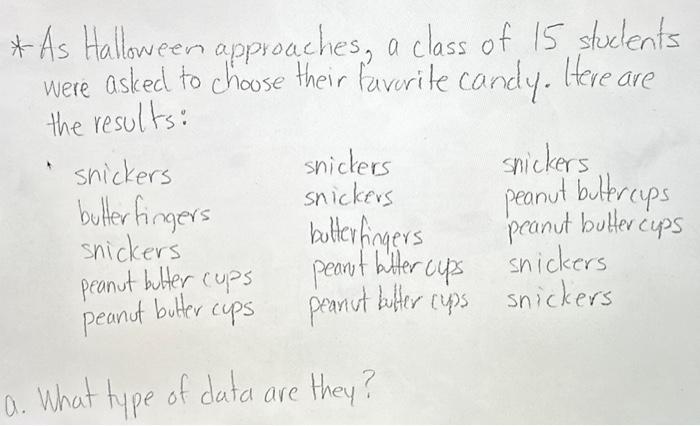 * As Halloween approaches, a class of 15 students
were asked to choose their favorite candy. Here are
the results:
snickers
butterfingers
snickers
peanut butter cups
peanut butter cups
snickers
snickers
butterfingers
peanut butter cups
peanut butter cups
snickers
peanut butter cups
peanut butter cups
snickers
snickers
a. What type of data are they?